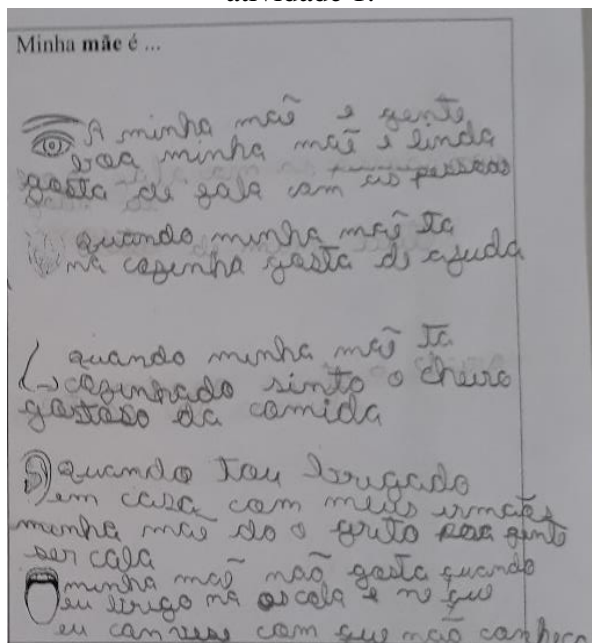 atividade 1.
Minha mãe é ...
A minha mãe e gente
boa minha mãe e linda
gosta de fala com as pessoas
quando minha mãe ta
na cozinha gosta di ajuda
quando minha mãe ta
cozinhado sinto o cheiro
gostoso da comida
Quando tou brigado
em casa com meus irmãos
minha mãe do o grito para gente
ser cala
minha mãe não gosta quando
eu brigo na escola e ne que
eu converse com que não conheço